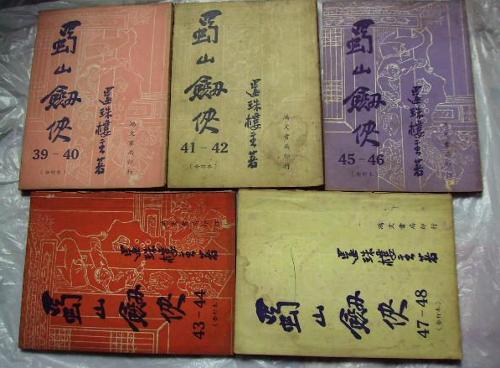 蜀山劍俠
還珠樓主著
39-40
(合訂本)
鴻文書局印行
蜀山劍俠
還珠樓主著
41-42
(合訂本)
鴻文書局印行
蜀山劍俠
還珠樓主著
45-46
(合訂本)
蜀山劍俠
還珠樓主著
43-44
(合訂本)
蜀山劍俠
還珠樓主著
47-48
(合訂本)
鴻文書局印行